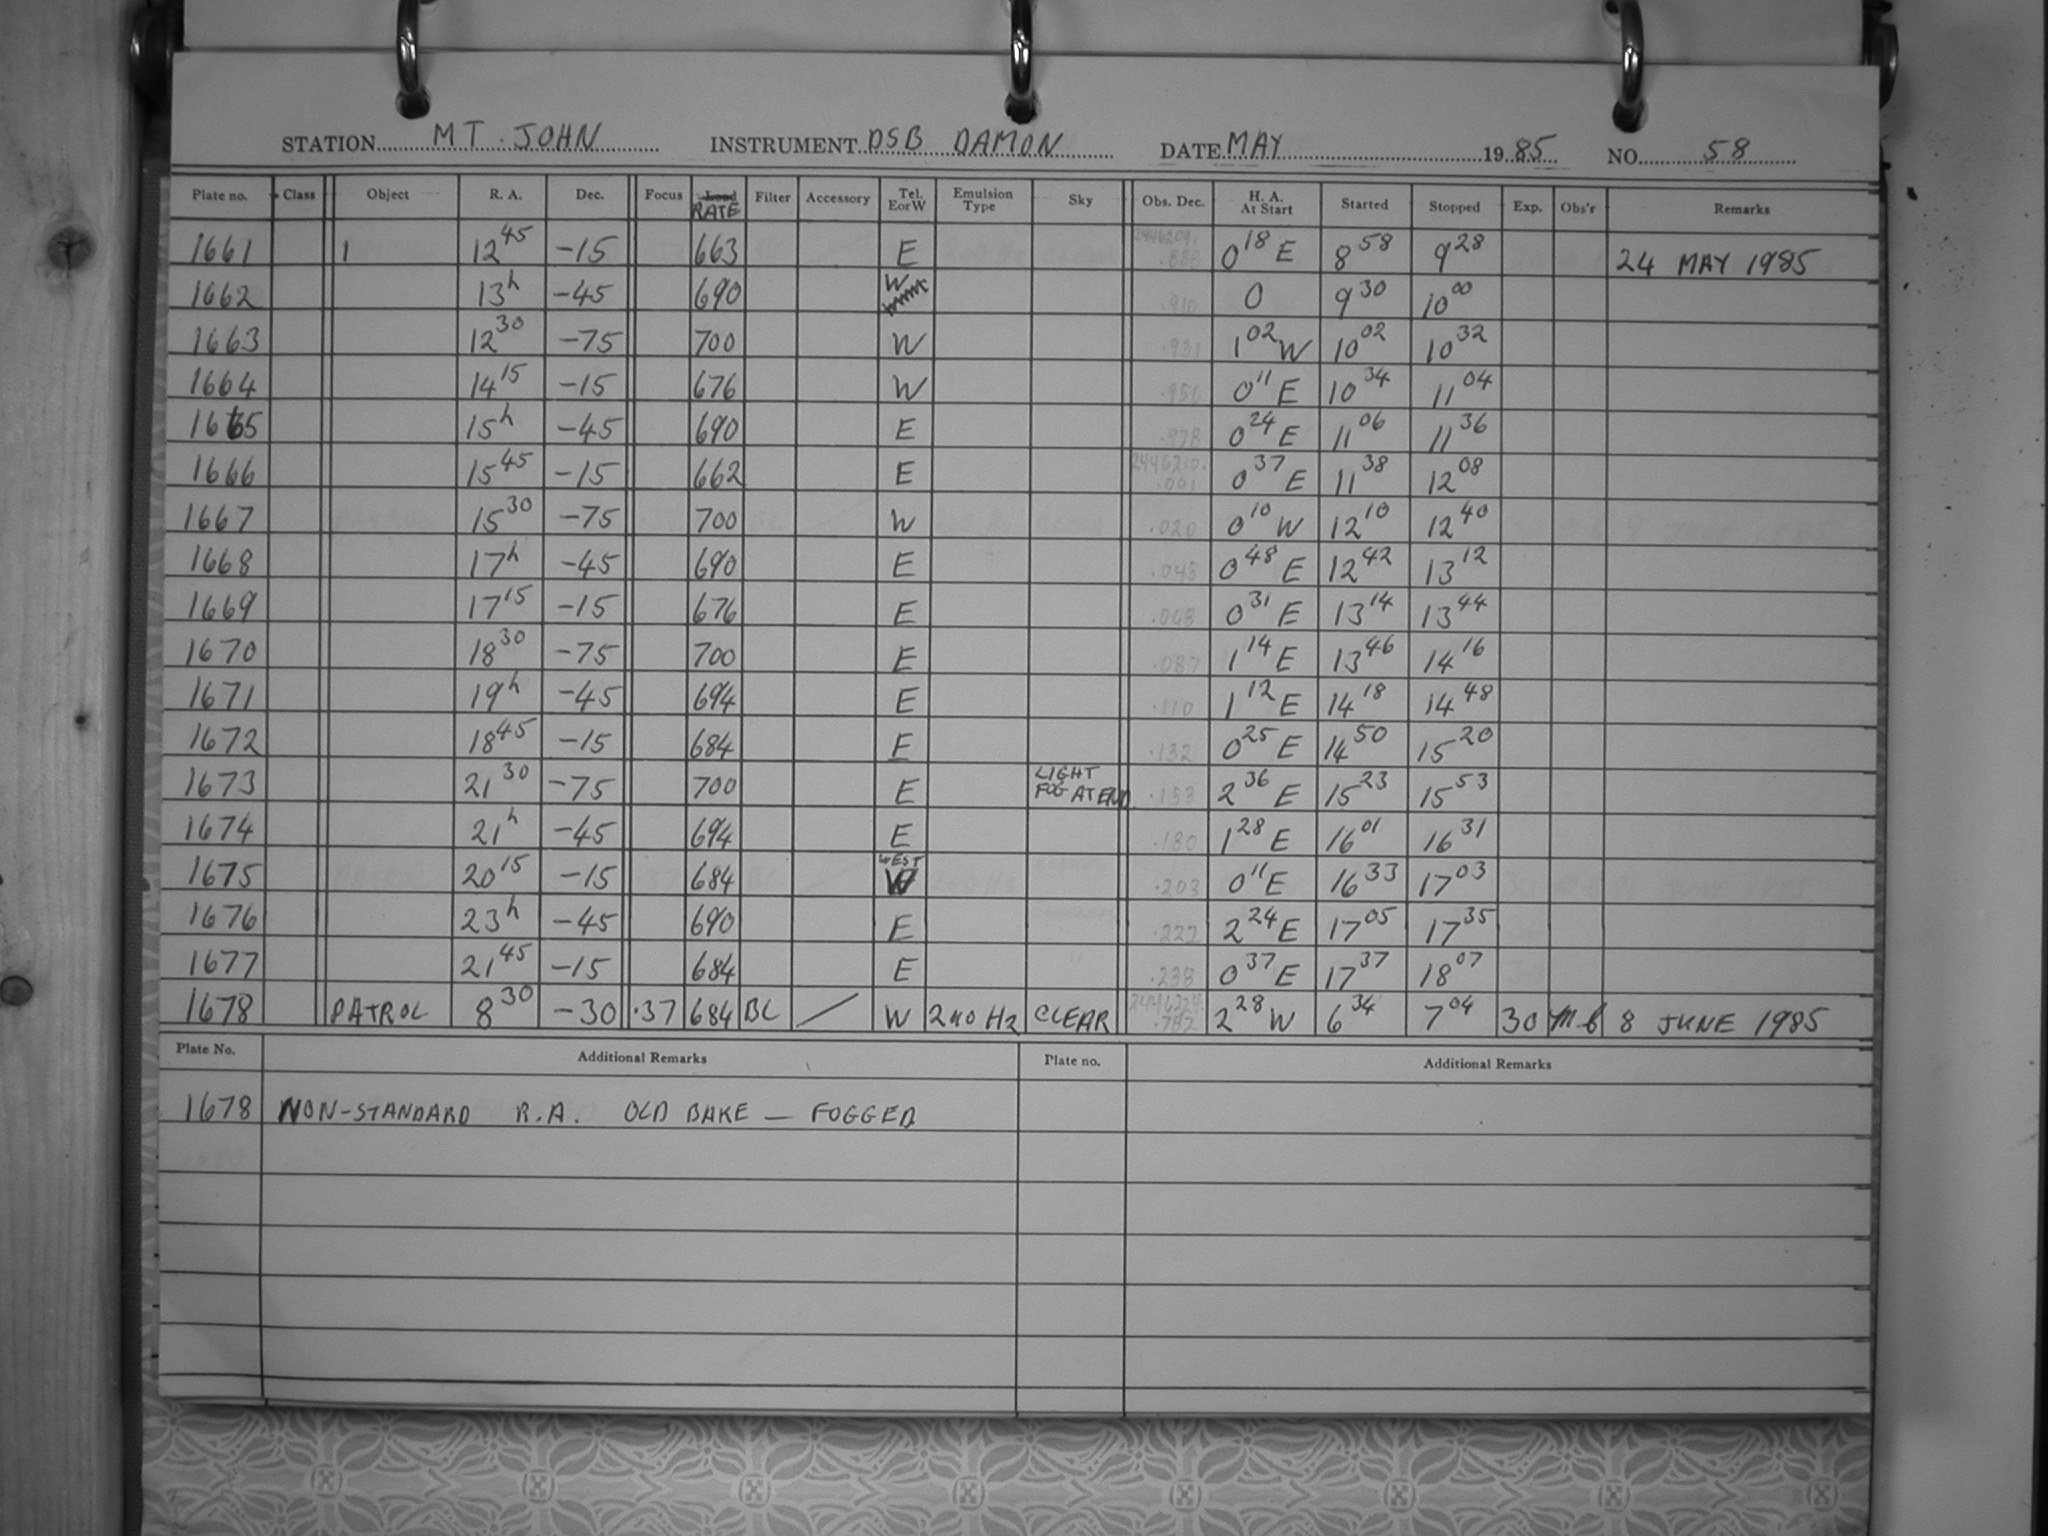 STATION MT. JOHN INSTRUMENT DSB DAMON DATE MAY 1985 NO. 58
Plate no. Class Object R. A. Dec. Focus Load RATE Filter Accessory Tel. E or W Emulsion Type Sky Obs. Dec. H. A. At Start Started Stopped Exp. Obs'r Remarks
1661 1 12 45 -15 663 E 0 18 E 8 58 9 28 24 MAY 1985
1662 13h -45 690 W .910 0 9 30 10 00
1663 12 30 -75 700 W .931 1 02 W 10 02 10 32
1664 14 15 -15 676 W .956 0 11 E 10 34 11 04
1665 15h -45 690 E .978 0 24 E 11 06 11 36
1666 15 45 -15 662 E 2446210. .001 0 37 E 11 38 12 08
1667 15 30 -75 700 W .020 0 10 W 12 10 12 40
1668 17h -45 690 E .045 0 48 E 12 42 13 12
1669 17 15 -15 676 E .068 0 31 E 13 14 13 44
1670 18 30 -75 700 E .087 1 14 E 13 46 14 16
1671 19h -45 694 E .110 1 12 E 14 18 14 48
1672 18 45 -15 684 E .132 0 25 E 14 50 15 20
1673 21 30 -75 700 E LIGHT FOG AT END .153 2 36 E 15 23 15 53
1674 21h -45 694 E .180 1 28 E 16 01 16 31
1675 20 15 -15 684 WEST W .203 0 11 E 16 33 17 03
1676 23h -45 690 E 2 24 E 17 05 17 35
1677 21 45 -15 684 E .238 0 37 E 17 37 18 07
1678 PATROL 8 30 -30 .37 684 BC / W 2a0 H2 CLEAR 2 28 W 6 34 7 04 30 mb 8 JUNE 1985
Plate No. Additional Remarks Plate no. Additional Remarks
1678 NON-STANDARD R.A. OLD BAKE — FOGGED